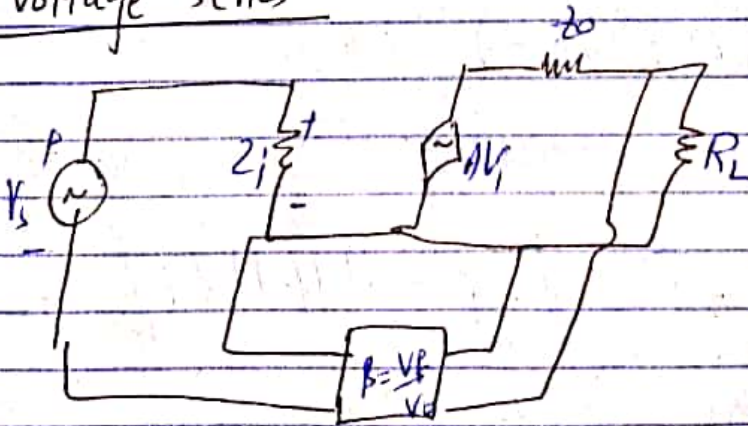 voltage series
Zo
P
+
Zi
Vs
~
~
AVi
RL
-
-
β = Vf
Vo